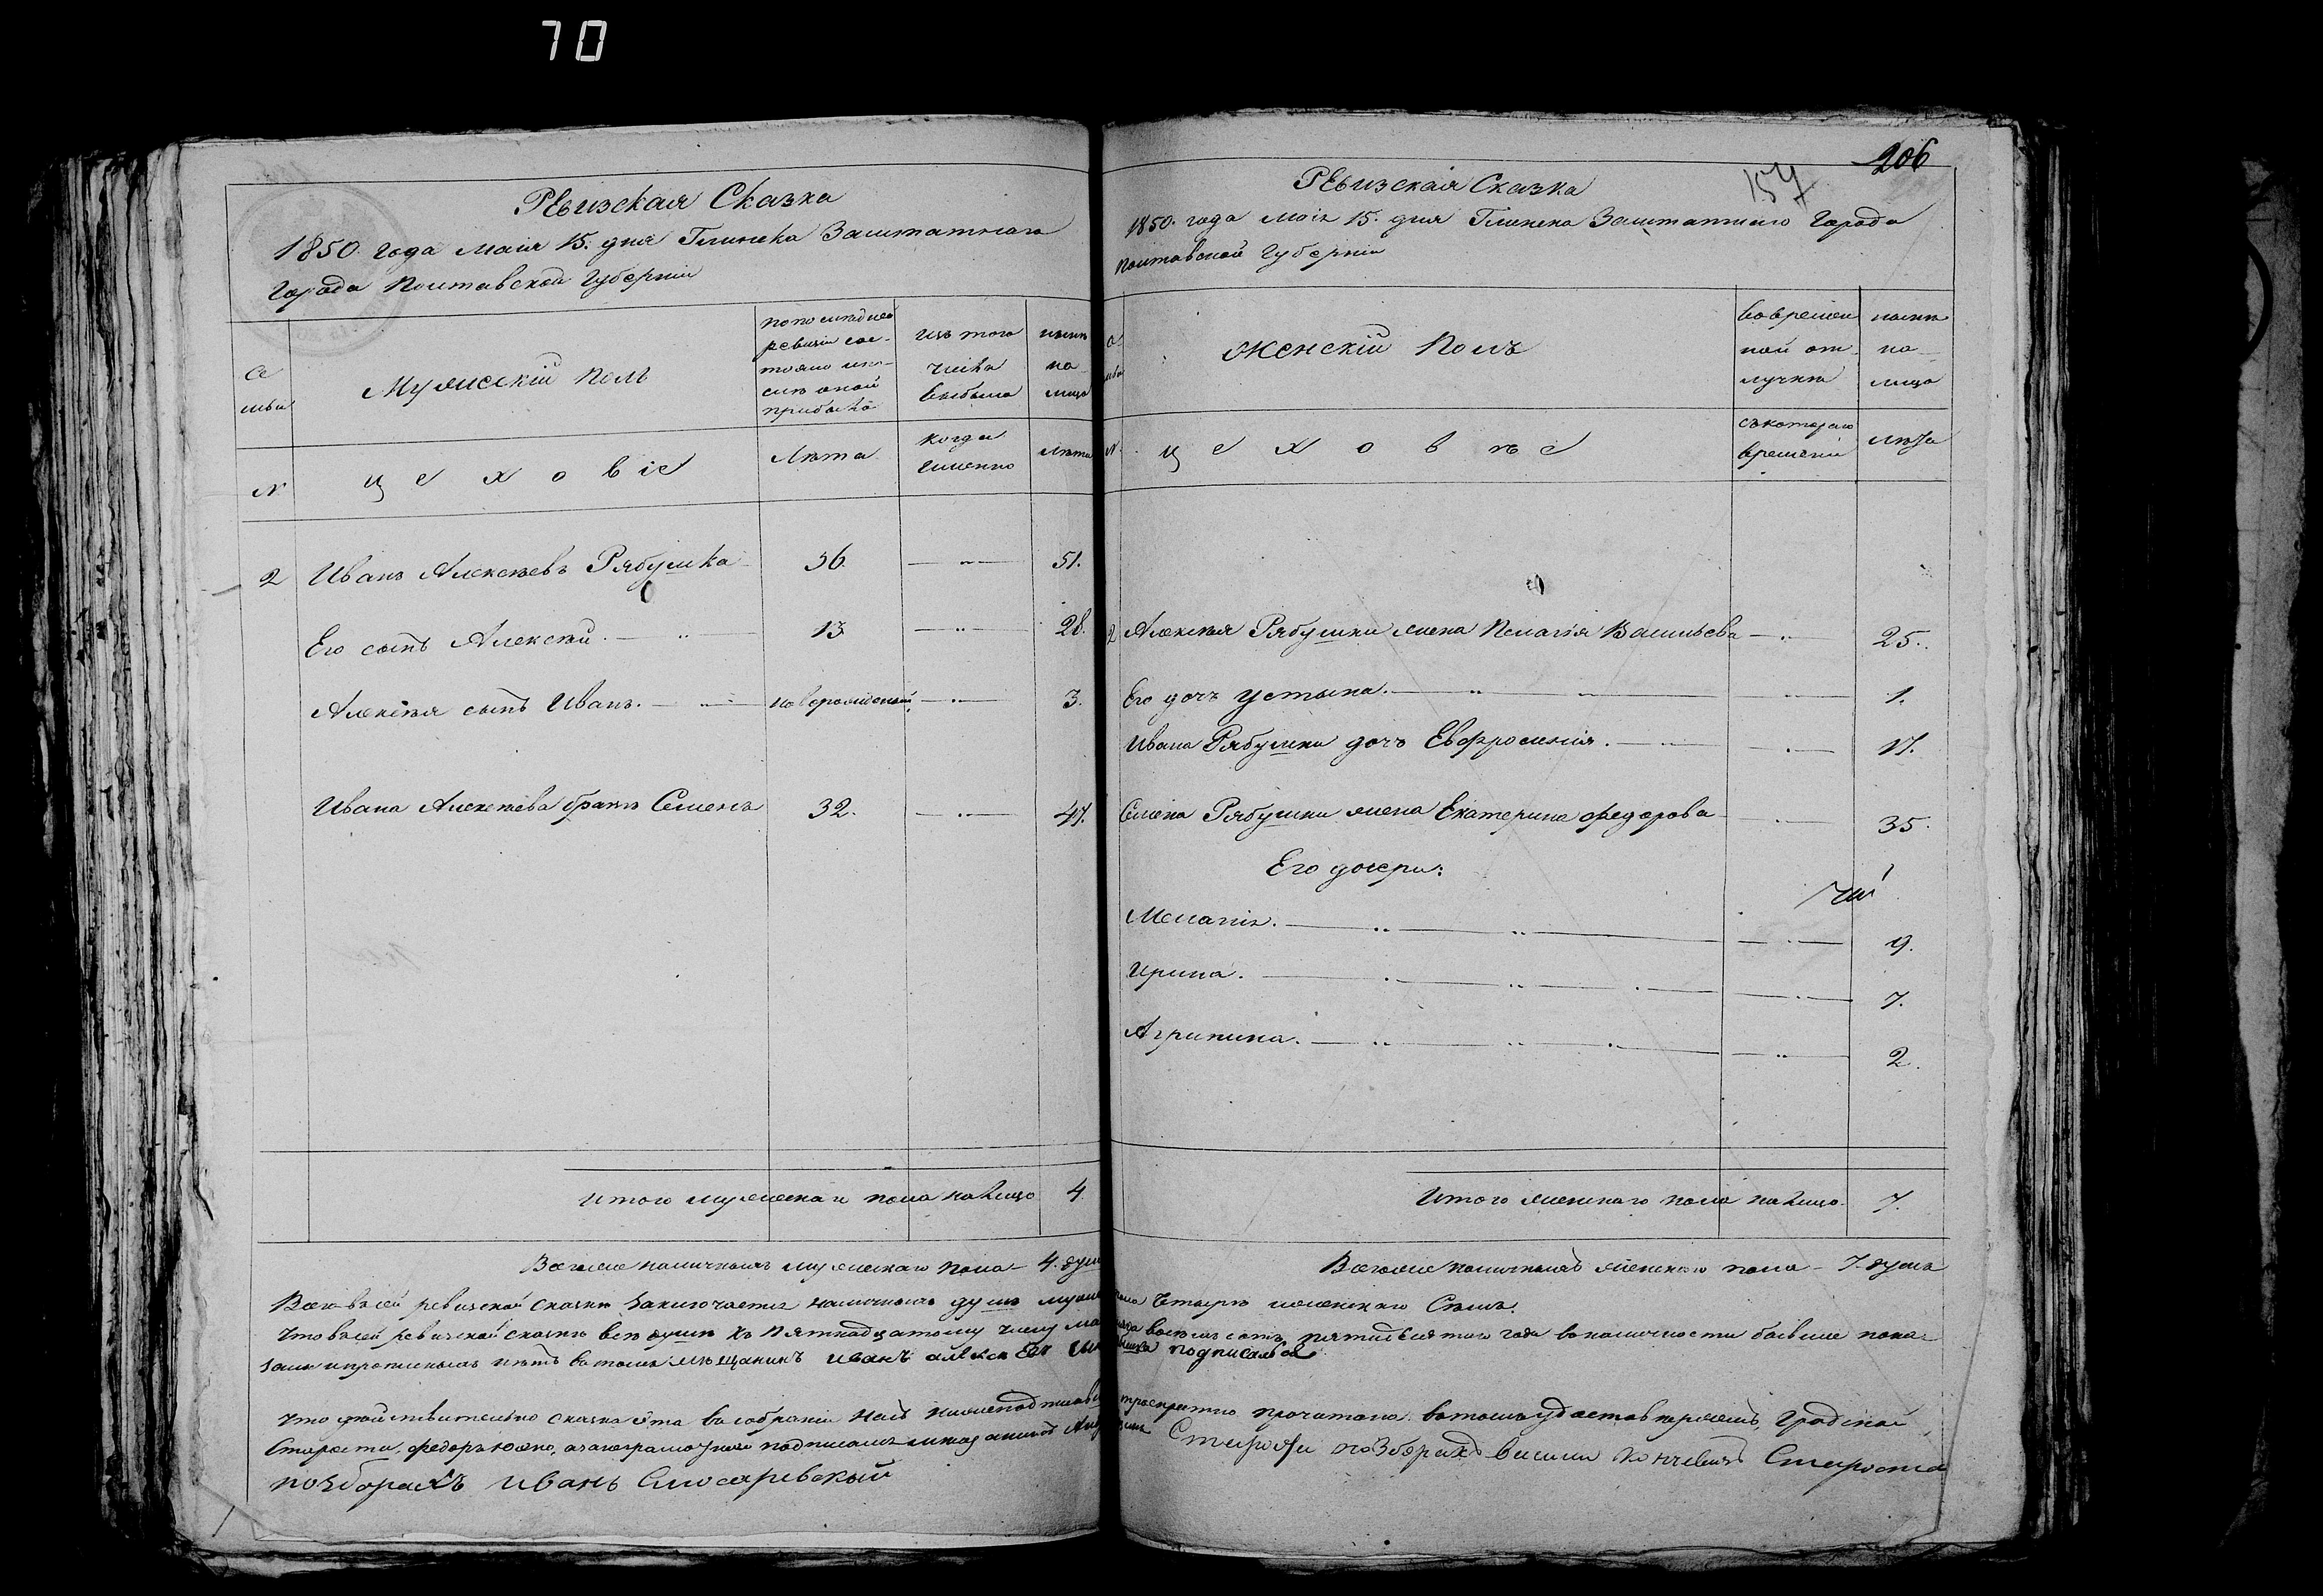 70
Ревизская Сказка
1850 года Маія 15. дня Глинска Заштатнаго
Города Полтавской Губерніи
Се
мьи
Мужескій Полъ
По последней
ревизіи сос-
тояло и по-
сле оной
прибыло
Изъ того
числа
выбыло
ныне
на
лицо
№
Цеховіе
Лета
Когда
именно
Лета
2 Иванъ Алексеевъ Рябушка 36. 51.
Его сынъ Алексей. 13 28.
Алексея сынъ Иванъ. новорожденый 3.
Ивана Алексеева братъ Семенъ 32. 47.
Итого мужеска пола на лицо 4
Всего наличныхъ мужескаго пола 4. душ
206
157
Ревизская Сказка
1850. года Маія 15. дня Глинска Заштатнаго Города
Полтавской Губерніи
Женскій Полъ
Во времен
ной от
лучке
ныне
на
лицо
№
Цеховые
съ котораго
времени
Лета
2 Алексея Рябушки жена Пелагія Васильева 25.
Его дочъ Устына. 1.
Ивана Рябушки дочъ Евфросинія. 17.
Семена Рябушки жена Екатерина Федорова 35.
Его дочери:
Меланія. 9.
Ирина. 7.
Агрипина. 2.
Итого женскаго пола на лицо. 7.
Всего наличныхъ женскаго пола 7 душъ
ревизской сказки заключается наличныхъ душъ четыре женскаго Семъ.
Что въ сей ревизской сказке все души къ Пятнадцатому числу восемъ сотъ пятидесятого года въ наличности бывшие пока-
заны и прописныхъ нетъ въ томъ мещанинъ Иванъ подписался
Что действительно сказка ета въ собраніи прочитана въ томъ удостоверяемъ, Градской
Староста Федоръ Староста по зборахъ Староста
по зборахъ Иванъ Слюсаревский